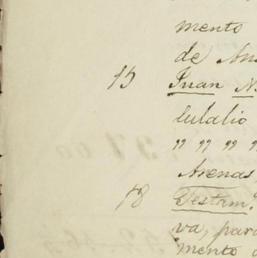 mento
de An
15 Juan N
lulalio
" " " "
Arenas
18 Testam.
va, para
mento